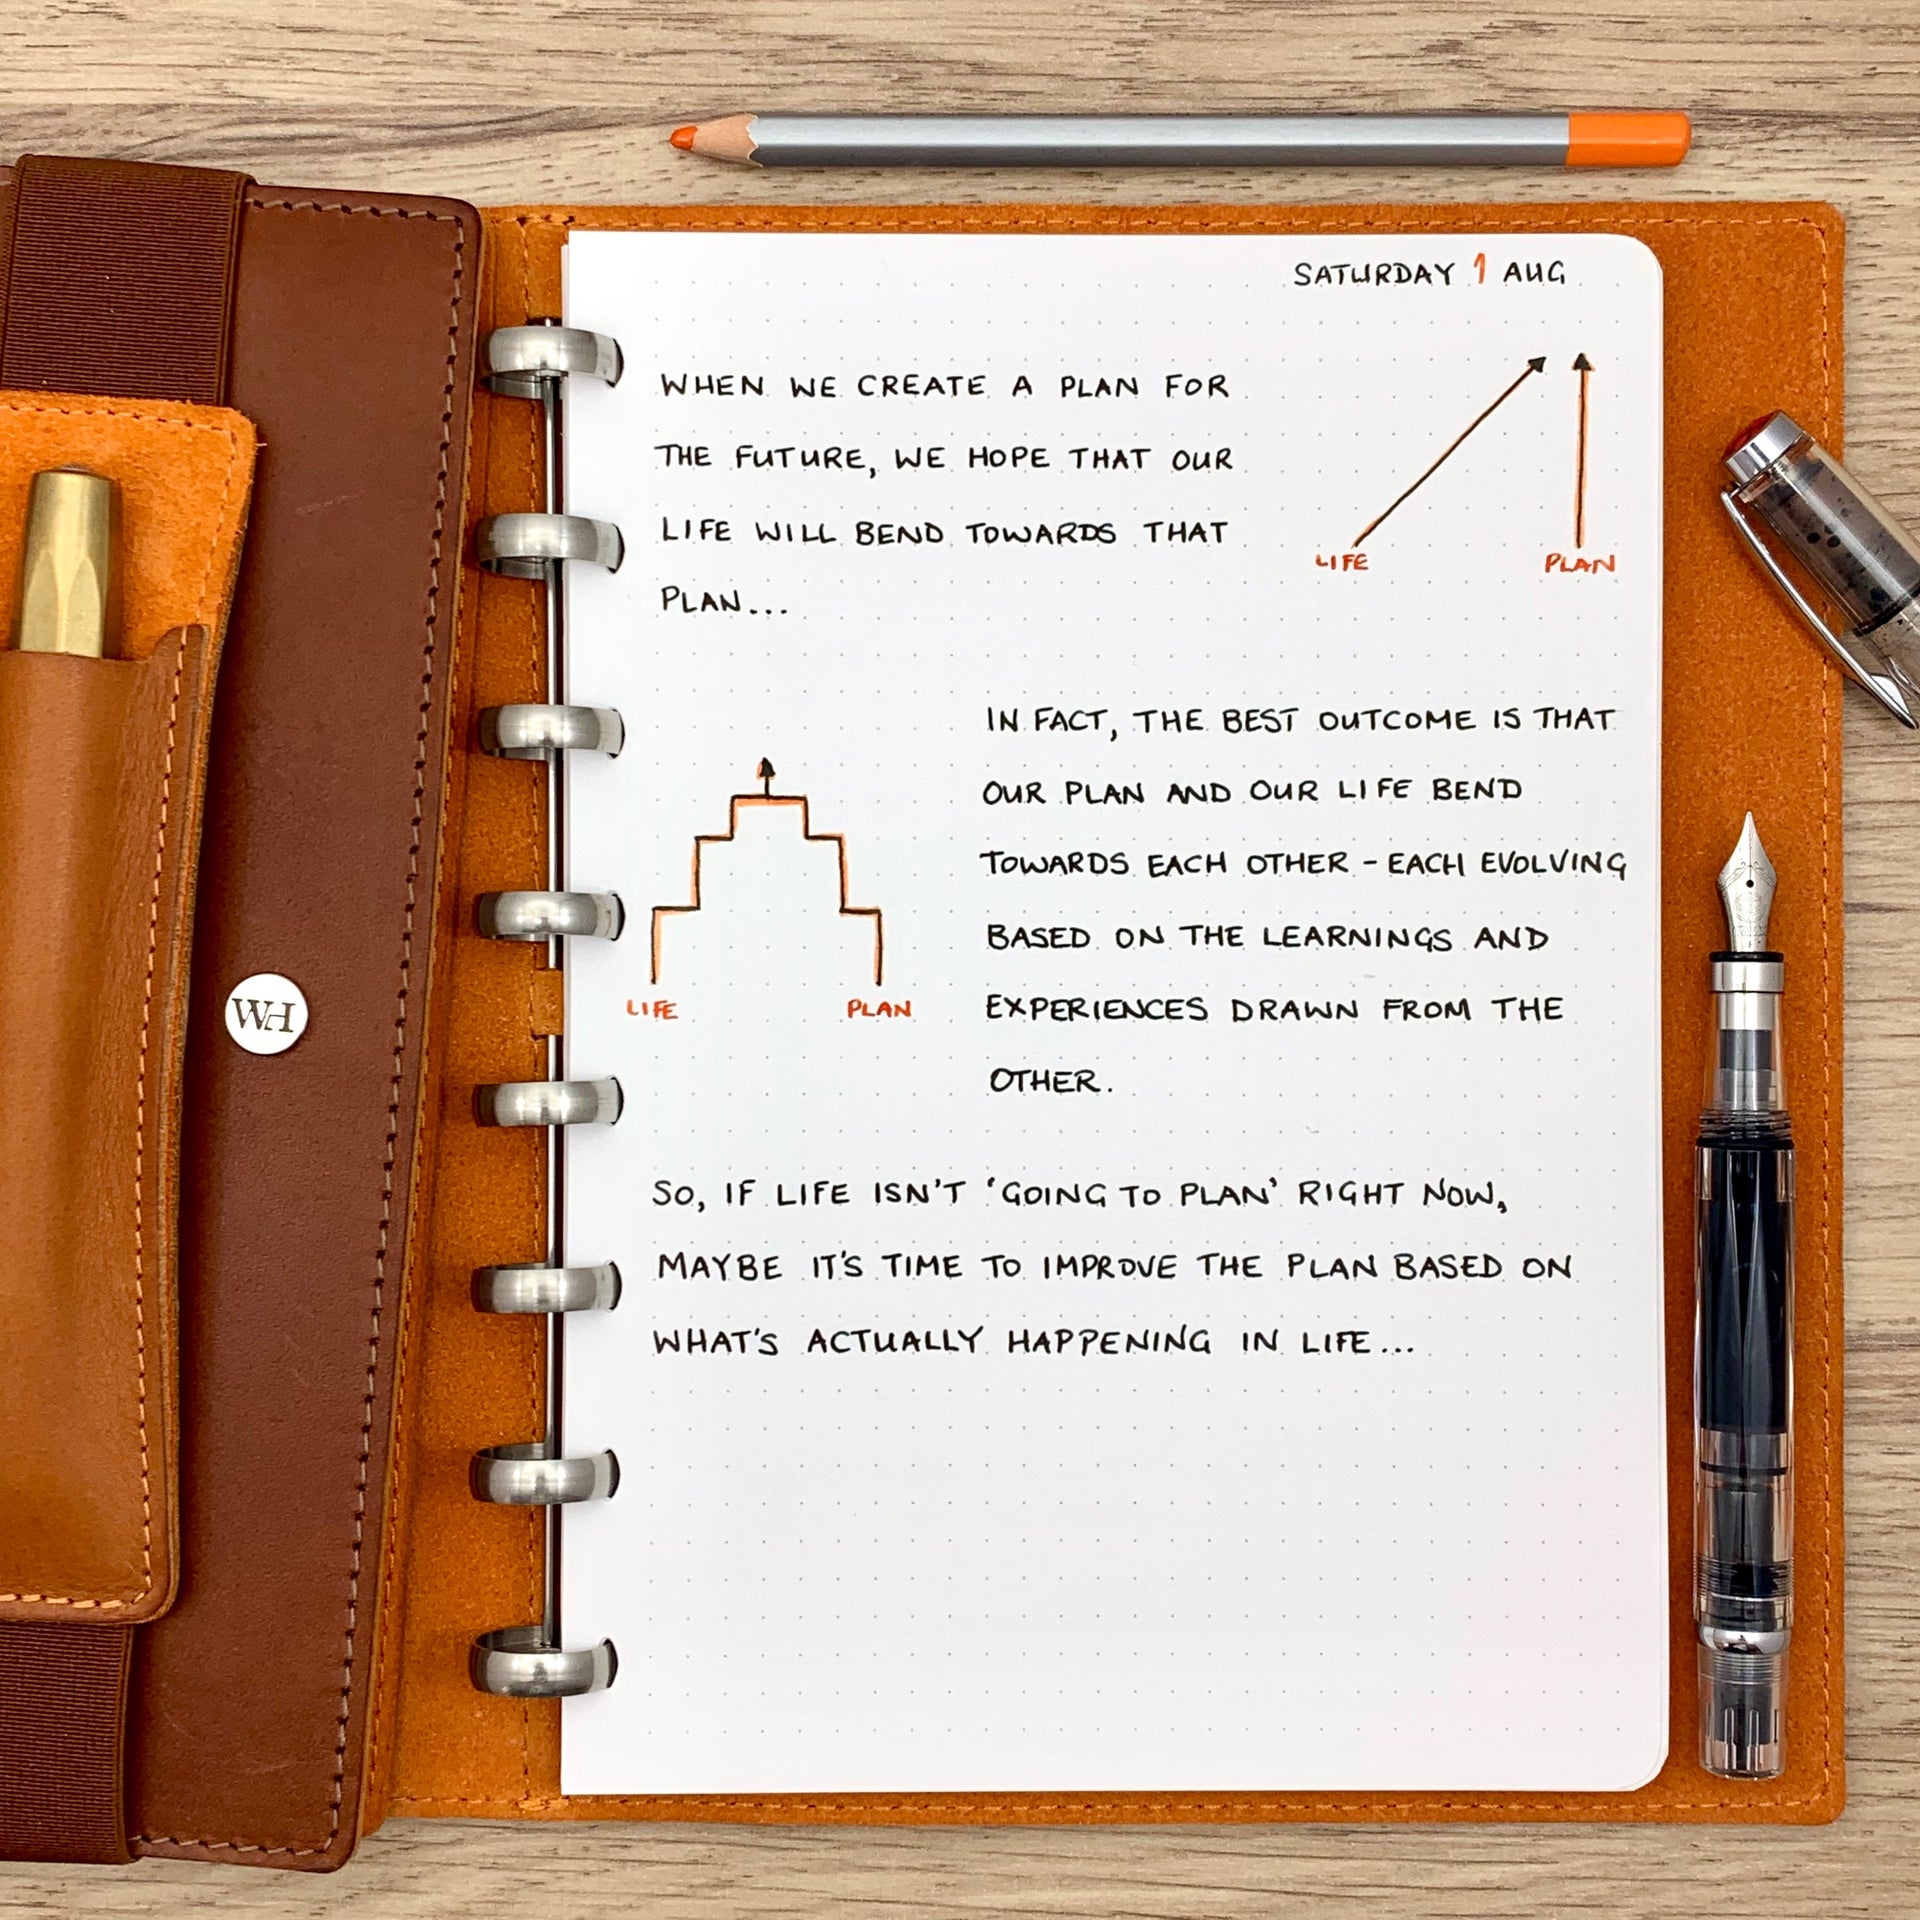 SATURDAY 1 AUG
WHEN WE CREATE A PLAN FOR
THE FUTURE, WE HOPE THAT OUR
LIFE WILL BEND TOWARDS THAT
PLAN...
LIFE
PLAN
IN FACT, THE BEST OUTCOME IS THAT
OUR PLAN AND OUR LIFE BEND
TOWARDS EACH OTHER - EACH EVOLVING
BASED ON THE LEARNINGS AND
EXPERIENCES DRAWN FROM THE
OTHER.
LIFE
PLAN
SO, IF LIFE ISN'T 'GOING TO PLAN' RIGHT NOW,
MAYBE IT'S TIME TO IMPROVE THE PLAN BASED ON
WHAT'S ACTUALLY HAPPENING IN LIFE...
WH